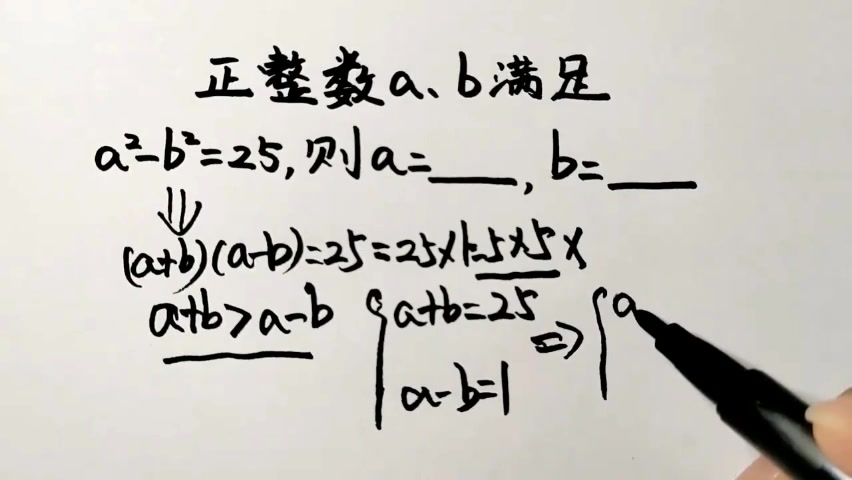 正整数a、b满足
a²-b²=25,则a=____,b=____
⇓
(a+b)(a-b)=25=25×1=5×5×
a+b>a-b { a+b=25 ⇒ { a
a-b=1